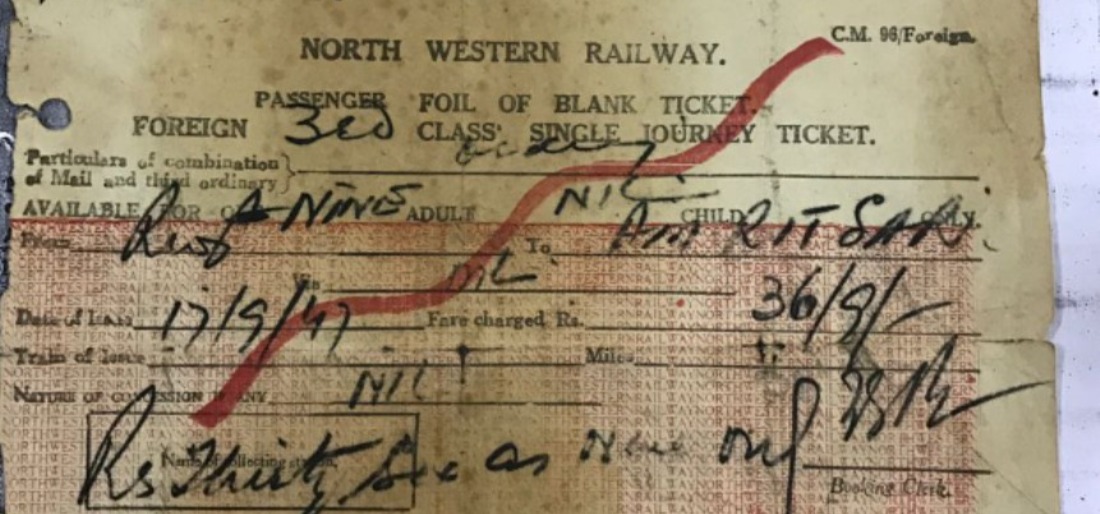 C.M. 96/Foreign.
NORTH WESTERN RAILWAY.
PASSENGER FOIL OF BLANK TICKET.
FOREIGN 3rd CLASS SINGLE JOURNEY TICKET.
Particulars of combination
of Mail and third ordinary
AVAILABLE FOR NINE ADULT NIL CHILD ONLY.
From To AMRITSAR.
Via NIL
Date of Issue 17/9/47 Fare charged Rs. 36/9/-
Train of Issue Miles
NATURE OF CONCESSION IF ANY NIL
Name of collecting station.
Rs Thirty Six as Nine only
Booking Clerk.